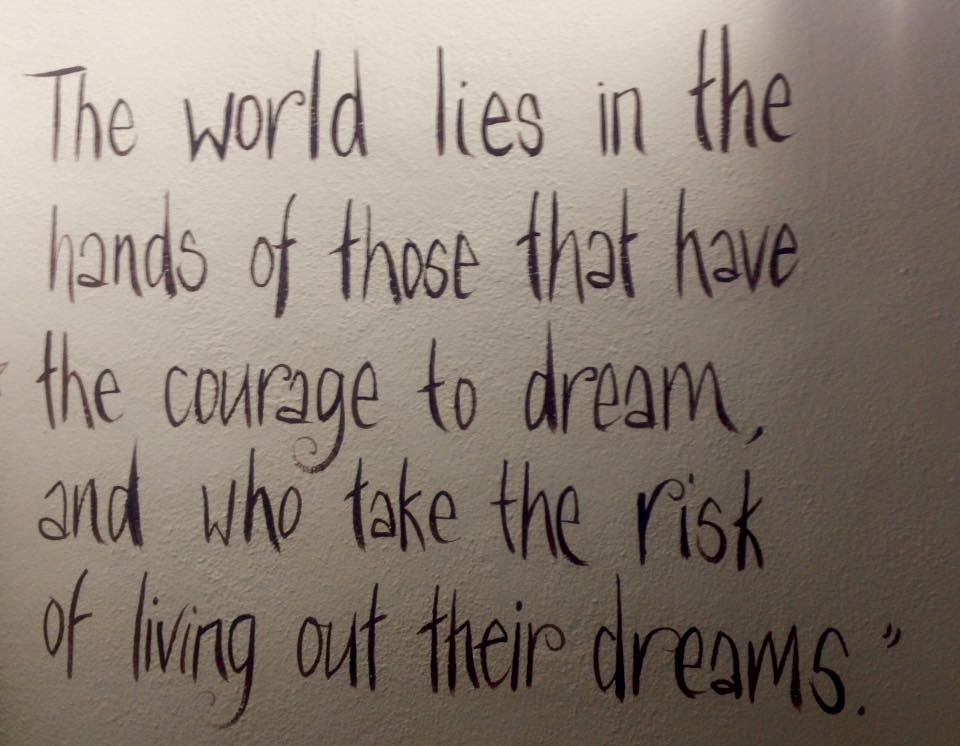 The world lies in the
hands of those that have
the courage to dream,
and who take the risk
of living out their dreams."